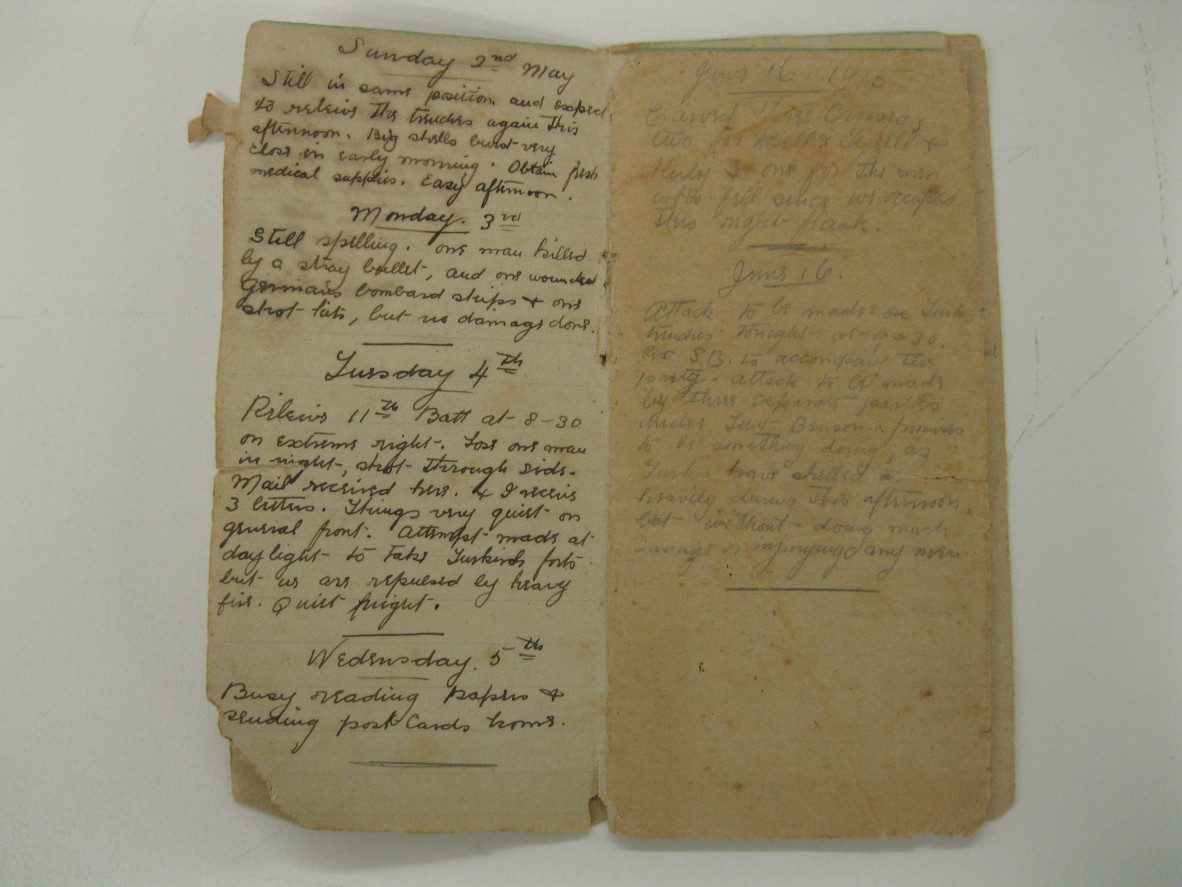 Sunday 2nd May
Still in same position and expect
to releive the trenches again this
afternoon. Big shells burst very
close in early morning. Obtain fresh
medical supplies. Easy afternoon.
Monday. 3rd
Still spelling. one man killed
by a stray bullet, and one wounded
Germans bombard ships & one
shot hits, but no damage done.
Tuesday 4th
Releive 11th Batt at 8-30
on extreme right. Lose one man
in night, shot through side.
Mail received here. & I receive
3 letters. Things very quiet on
general front. Attempt made at
daylight to take Turkish forts
but we are repulsed by heavy
fire. Quiet night.
Wednesday. 5th
Busy reading papers &
sending post cards home.
June 16 19
Carved Three Crosses,
two for &
& one for the men
who fell since we occupied
this right flank.
June 16.
Attack to be made on Turk
trenches tonight at 9-30.
Six S.B. to accompany the
party. attack to be made
by three separate parties
under Lieut Benson. promises
to be something doing, as
Turks have shelled us
heavily during this afternoon,
but without doing much
damage or injurying any men